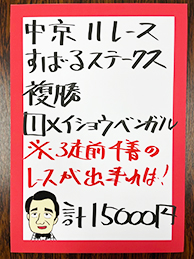 中京11レース
すばるステークス
複勝
1メイショウベンガル
※3走前4着の
レースが出来れば!
計15000円